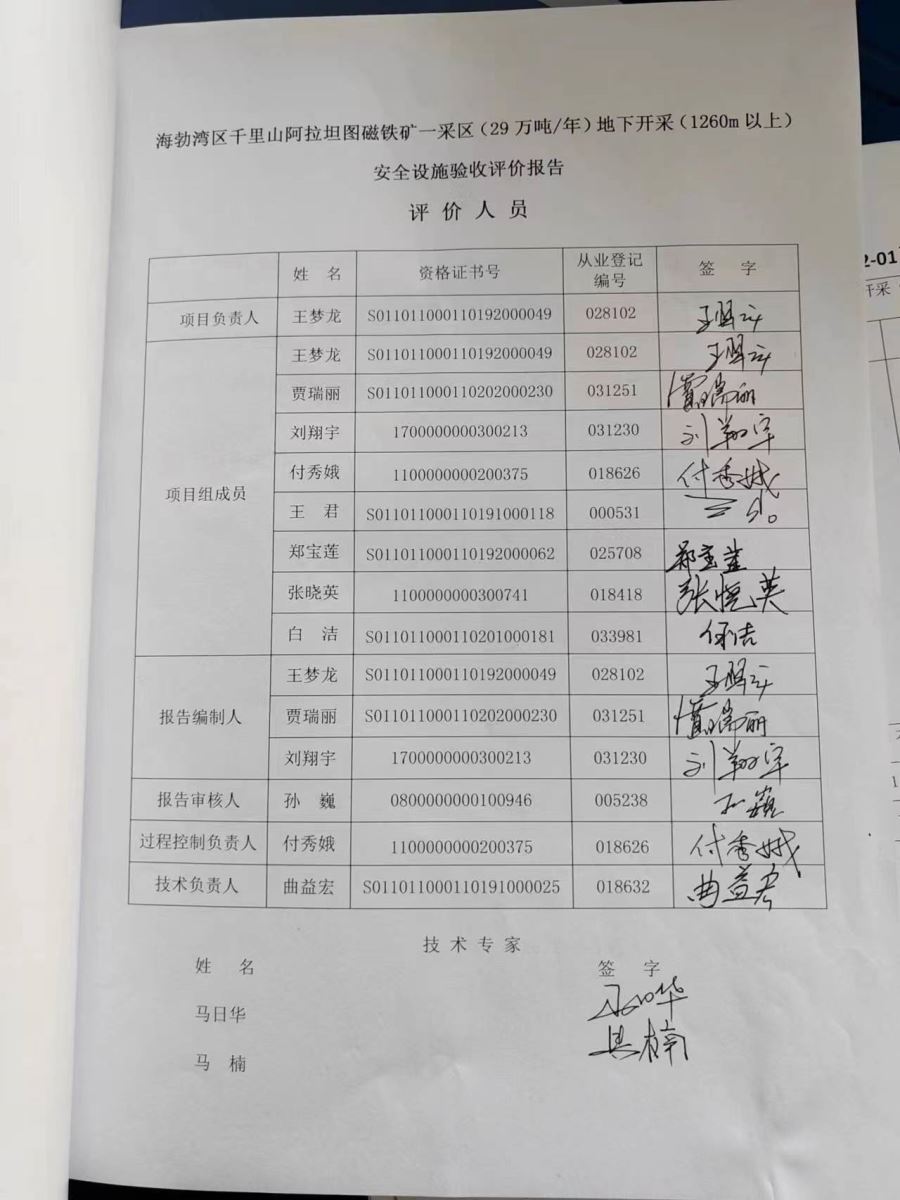 海勃湾区千里山阿拉坦图磁铁矿一采区（29万吨/年）地下开采（1260m以上）
安全设施验收评价报告
评 价 人 员
姓 名 资格证书号 从业登记编号 签 字
项目负责人 王梦龙 S011011000110192000049 028102
项目组成员 王梦龙 S011011000110192000049 028102
贾瑞丽 S011011000110202000230 031251 贾瑞丽
刘翔宇 1700000000300213 031230 刘翔宇
付秀娥 1100000000200375 018626 付秀娥
王 君 S011011000110191000118 000531
郑宝莲 S011011000110192000062 025708 郑宝莲
张晓英 1100000000300741 018418 张晓英
白 洁 S011011000110201000181 033981
报告编制人 王梦龙 S011011000110192000049 028102
贾瑞丽 S011011000110202000230 031251 贾瑞丽
刘翔宇 1700000000300213 031230 刘翔宇
报告审核人 孙 巍 0800000000100946 005238 孙巍
过程控制负责人 付秀娥 1100000000200375 018626 付秀娥
技术负责人 曲益宏 S011011000110191000025 018632 曲益宏
技 术 专 家
姓 名 签 字
马日华 马日华
马 楠 马楠
2-01
开采